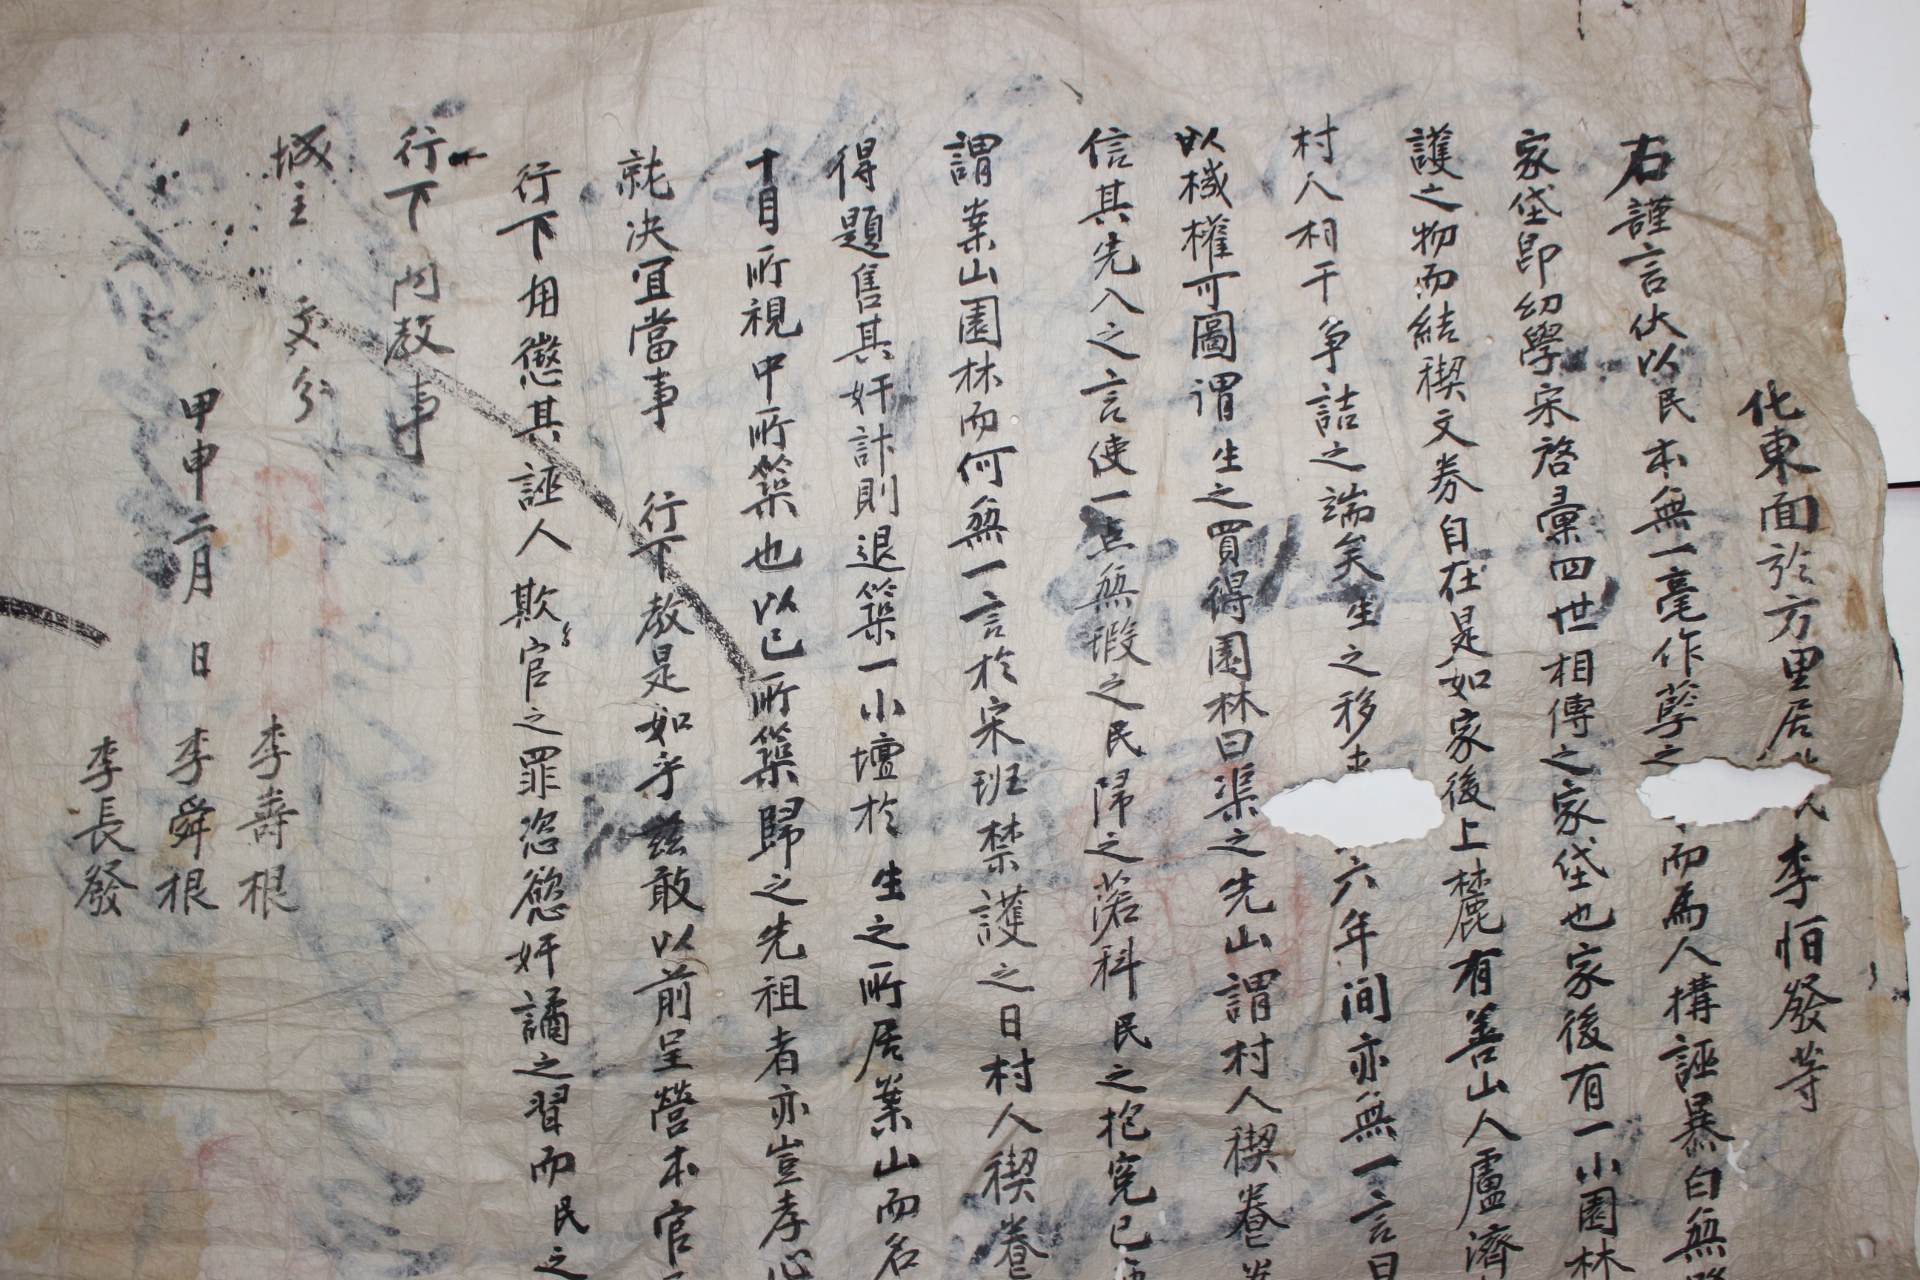 化東面於方里居 李怕發等
右謹言伏以民本無一毫作孽之 而爲人搆誣暴白無
家垈卽幼學宋啓彙四世相傳之家垈也家後有一小園林
護之物而結稧文券自在是如家後上麓有善山人盧濟
村人相干争詰之端矣生之移 六年间亦無一言曰
以機權可圖谓生之買得園林曰渠之先山謂村人稧卷
信其先入之言使一点無瑕之民歸之 科民之抱寃已
謂案山園林而何無一言於宋班禁護之日村人稧卷
得題售其奸計則退築一小壇於生之所居案山而名
十目所視中所築也以已所築歸之先祖者亦豈孝心
就決冝當事 行下敎是如乎茲敢以前呈營本官
行下用懲其誣人欺官之罪恣慾奸譎之習而民之
行下向敎事
城主 處分
甲申二月 日 李壽根
李舜根
李長發